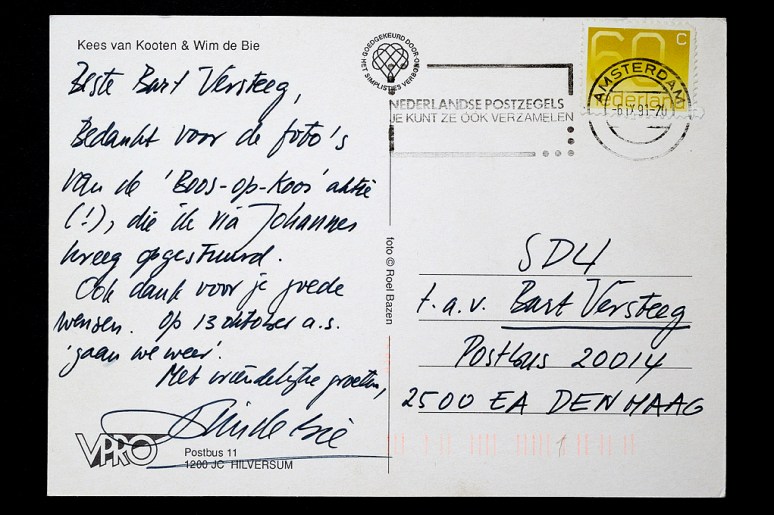 Kees van Kooten & Wim de Bie
Beste Bart Versteeg,
Bedankt voor de foto's
van de 'Boos-op-Koos' aktie
(!), die ik via Johannes
kreeg opgestuurd.
Ook dank voor je goede
wensen. Op 13 oktober a.s.
'gaan we weer'.
Met vriendelijke groeten,
Wim de Bie
VPRO
Postbus 11
1200 JC HILVERSUM
foto © Roel Bazen
GOEDGEKEURD DOOR
HET SIMPLISTIES VERBOND
NEDERLANDSE POSTZEGELS
JE KUNT ZE ÓÓK VERZAMELEN
60 C
nederland
AMSTERDAM
SD4
t.a.v. Bart Versteeg
Postbus 20014
2500 EA DEN HAAG